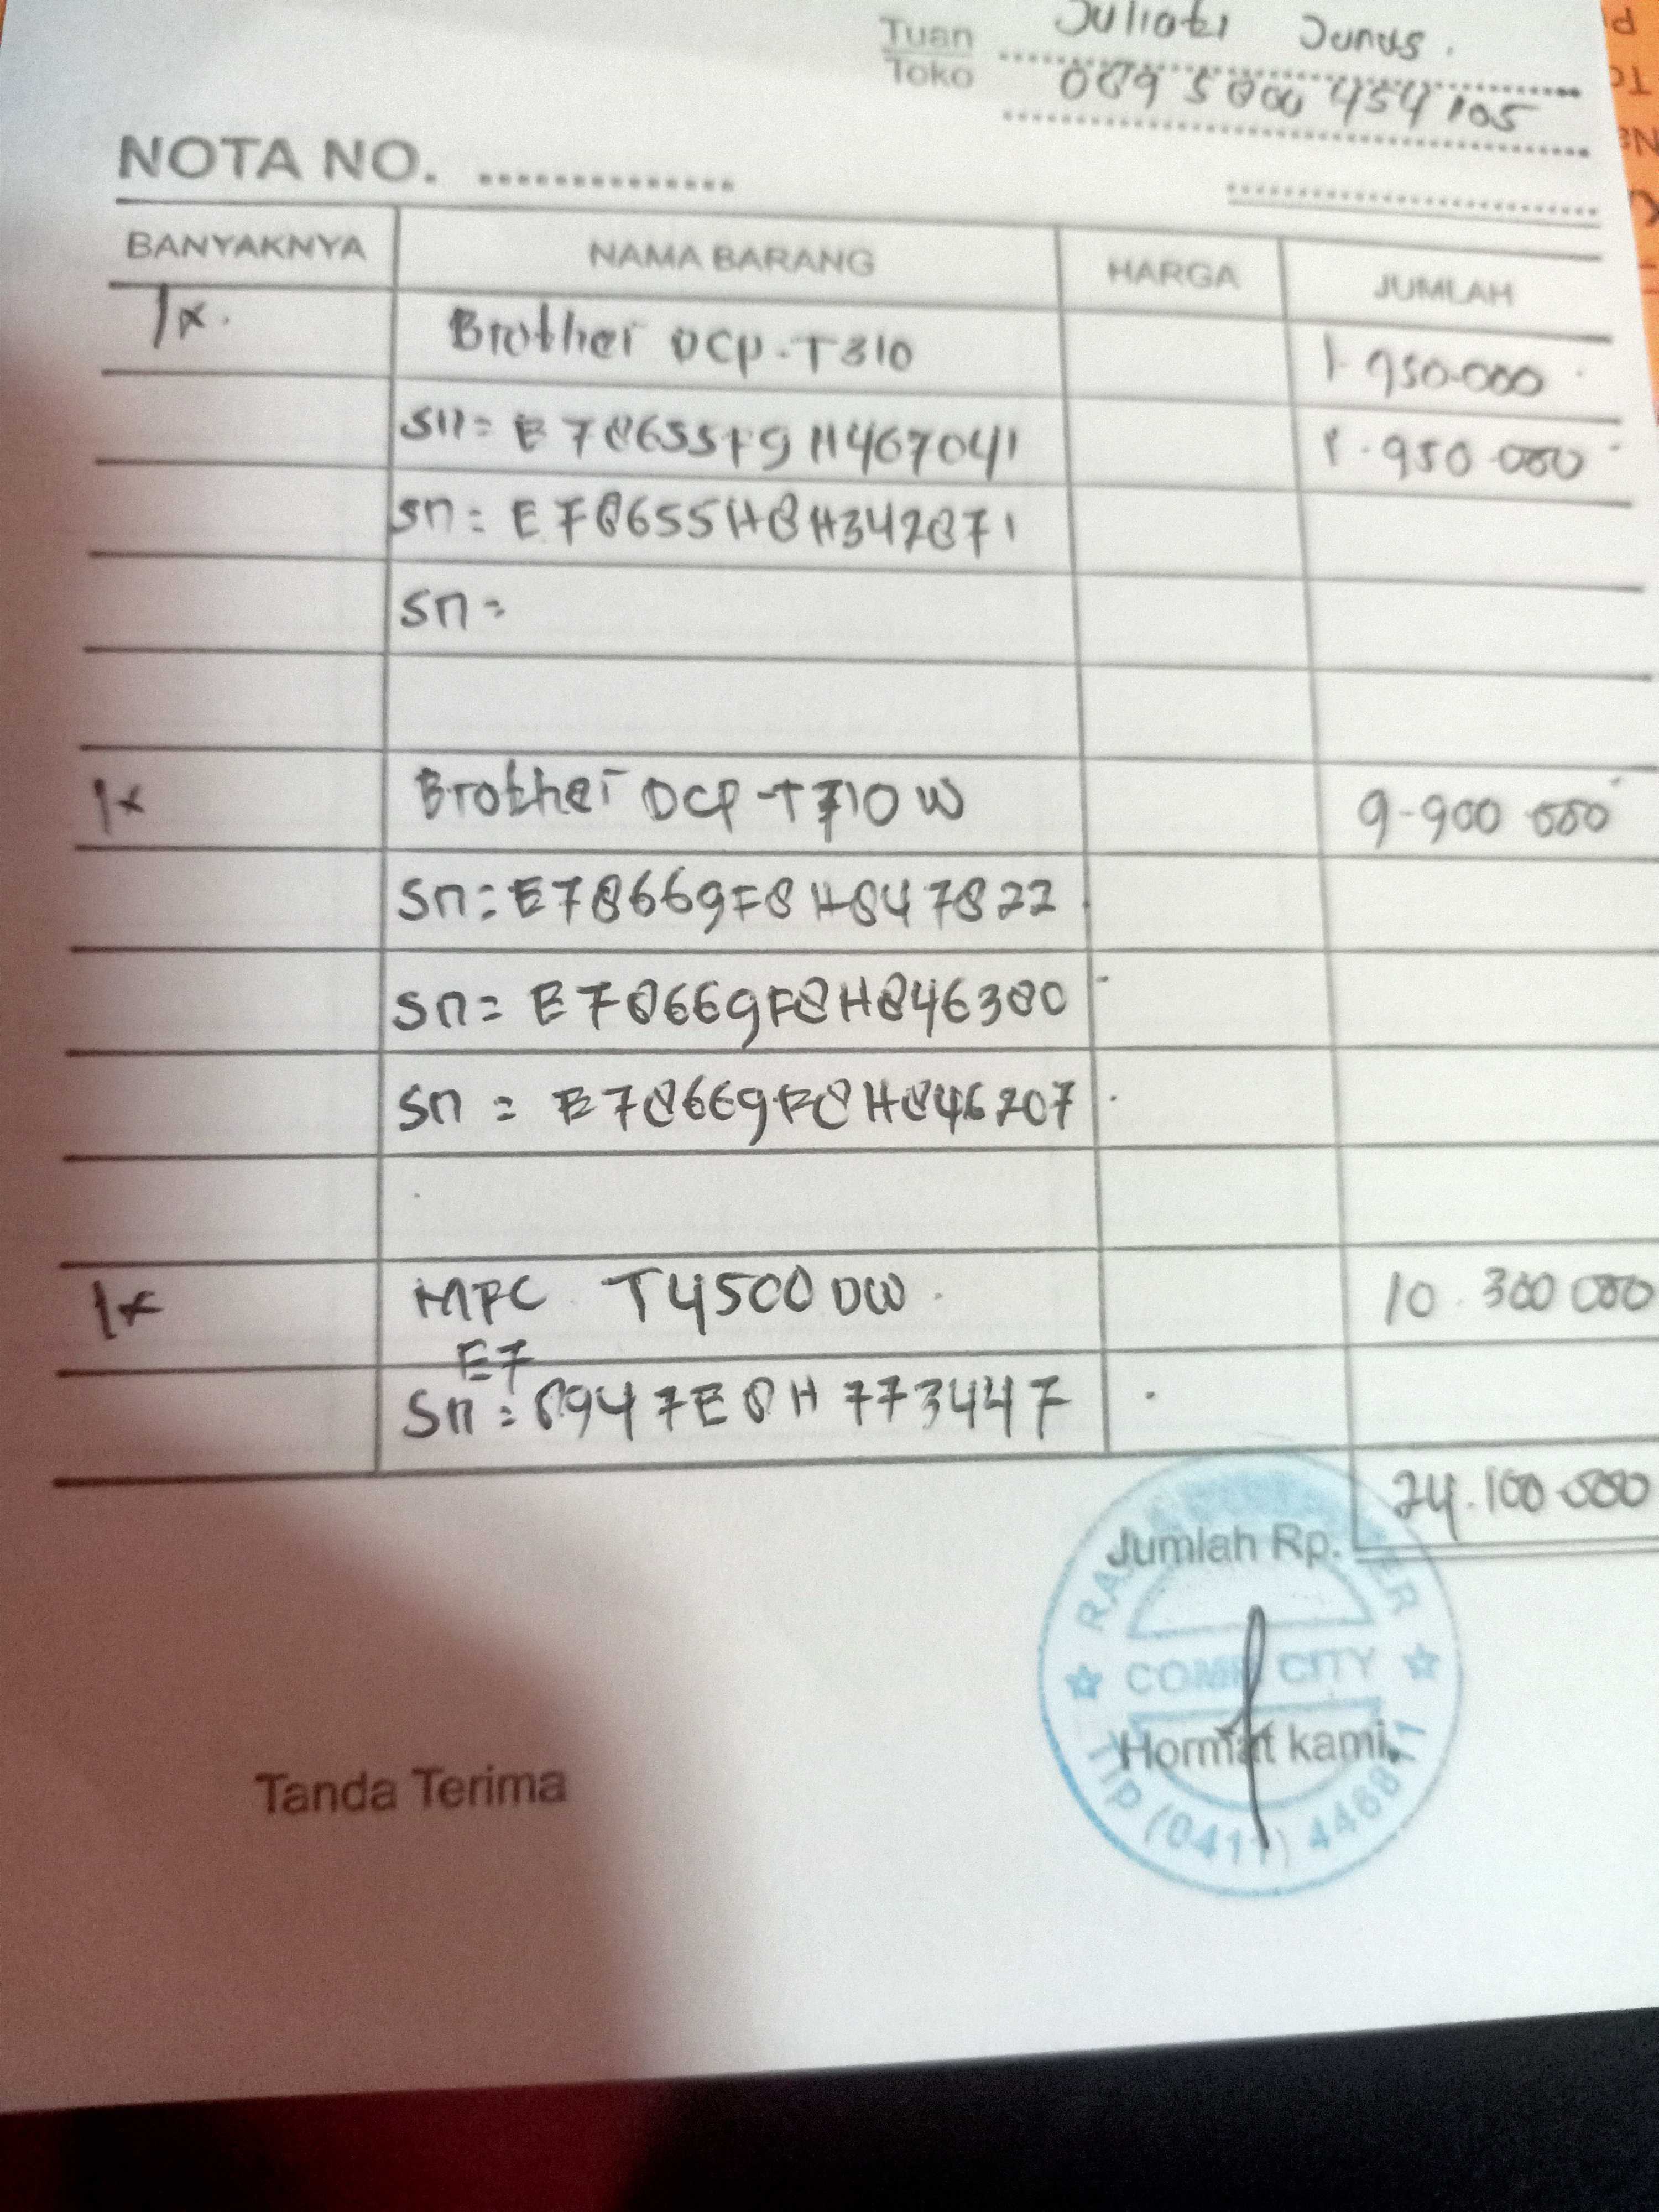 Tuan Juliati Junus.
Toko 089 5800 454 105
NOTA NO. ...............
BANYAKNYA NAMA BARANG HARGA JUMLAH
1x. Brother DCP-T310 1.950.000
sn= E78655F9H467041 1.950.000
sn= E78655H8H342871
sn=
1x Brother DCP-T710W 9.900.000
sn= E78669F8H847822
sn= E78669F8H846380
sn= E78669F8H846207
1x MFC T4500DW. 10.300.000
E7
sn: 8947E8H773447
24.100.000
Jumlah Rp.
COMP CITY
Hormat kami,
Tlp (0411)
Tanda Terima